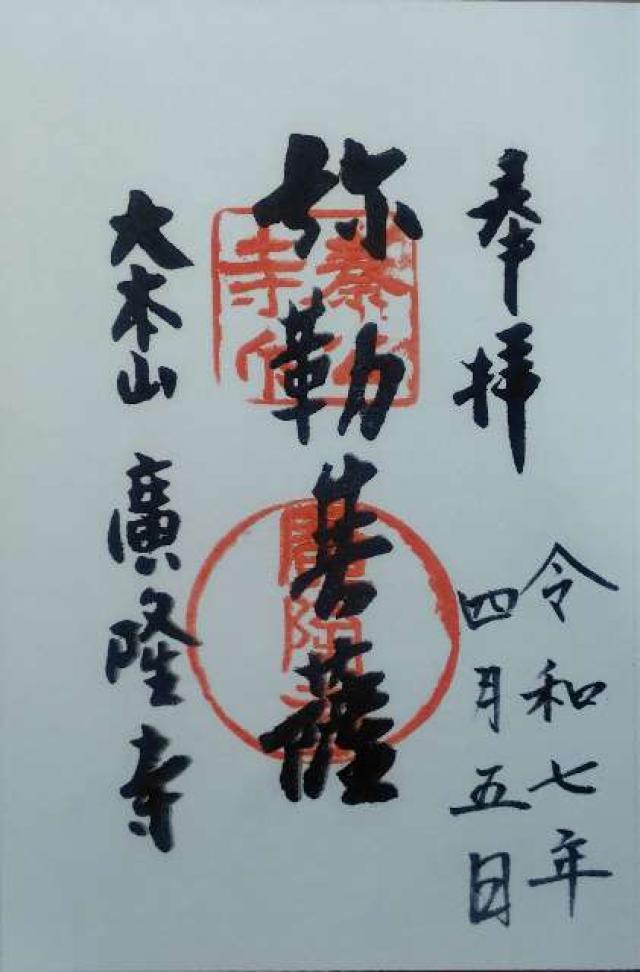 奉拝
令和七年
四月五日
弥勒菩薩
大本山 廣隆寺